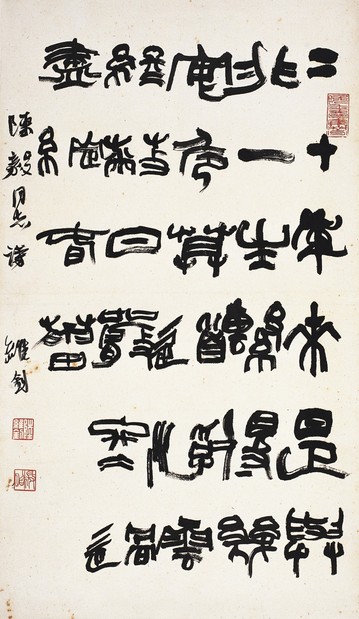 二十年來是與
非一生係得幾
安危莫道浮雲
終蔽日嚴冬過
盡綻春蕾
陳毅同志詩